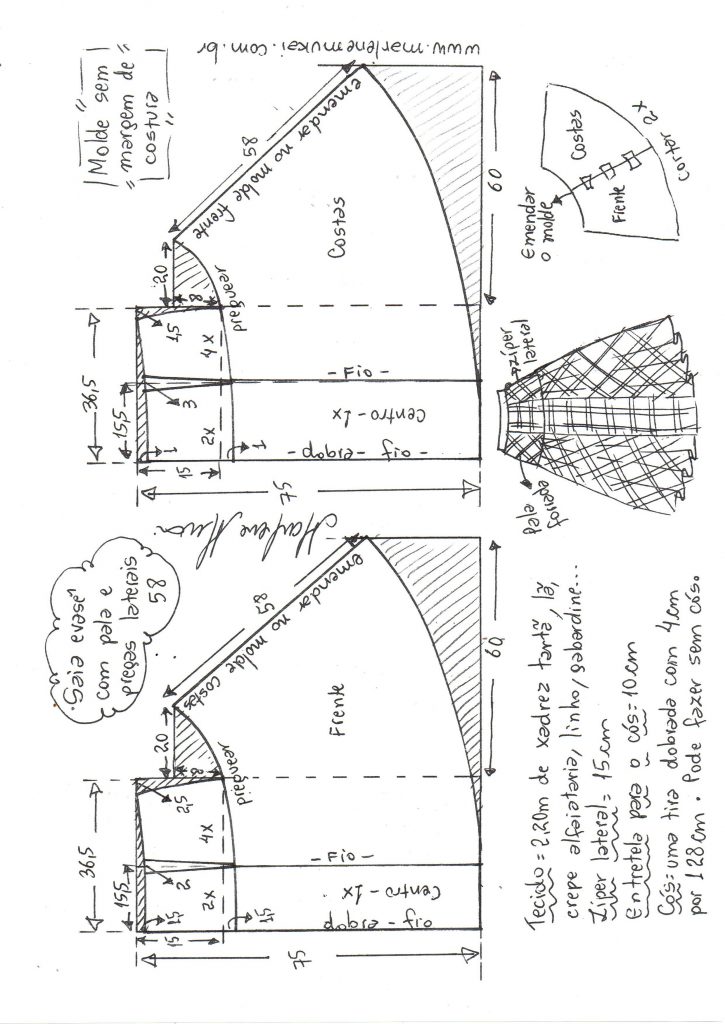 "Molde sem
margem de
costura"
www.marlenemukai.com.br
36,5
15,5
1
3
1,5
2x
4x
15
1
75
8
20
preguear
58
emendar no molde frente
Costas
- Fio -
Centro - 1x
- dobra - fio -
60
Emendar
o molde
Costas
Frente
Cortar 2x
zíper
lateral
pala
forrada
Saia evasê
com pala e
pregas laterais
58
36,5
15,5
1,5
2
2,5
2x
4x
15
1,5
75
8
20
preguear
58
emendar no molde costas
Frente
- Fio -
Centro - 1x
dobra - fio
60
Tecido = 2,20m de xadrez tartã, lã,
crepe alfaiataria, linho, gabardine...
Zíper lateral = 15cm
Entretela para o cós = 10cm
Cós = uma tira dobrada com 4cm
por 128cm. Pode fazer sem cós.